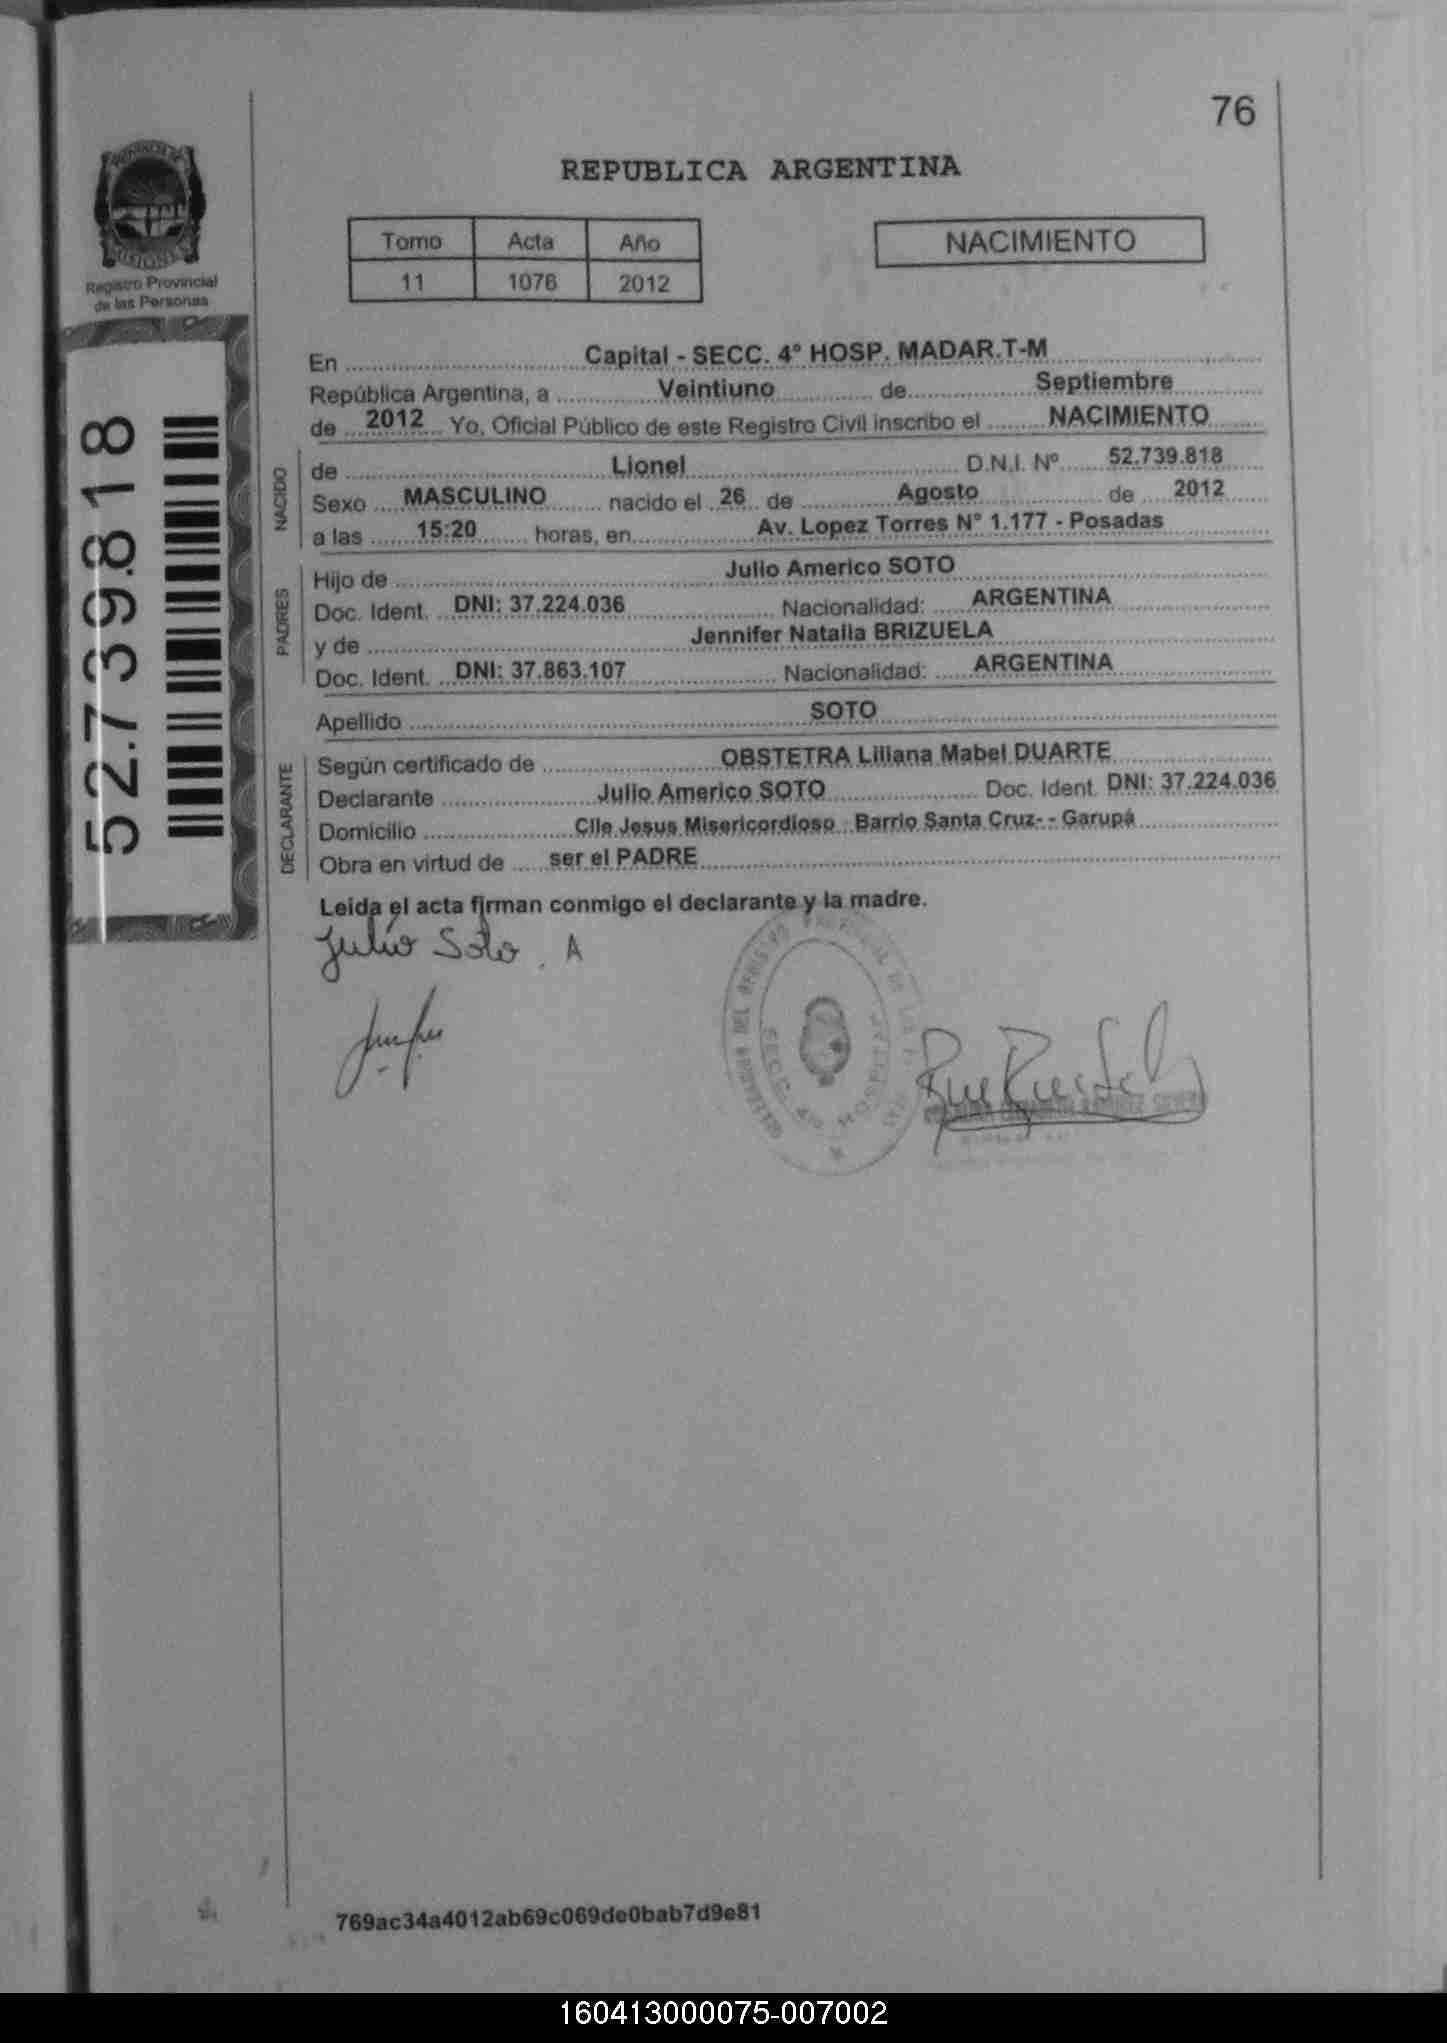 76
PROVINCIA DE
MISIONES
Registro Provincial
de las Personas
REPUBLICA ARGENTINA
Tomo Acta Año
11 1076 2012
NACIMIENTO
52.739.818
En Capital - SECC. 4° HOSP. MADAR.T-M
República Argentina, a Veintiuno de Septiembre
de 2012 Yo, Oficial Público de este Registro Civil inscribo el NACIMIENTO
NACIDO
de Lionel D.N.I. Nº 52.739.818
Sexo MASCULINO nacido el 26 de Agosto de 2012
a las 15:20 horas, en Av. Lopez Torres N° 1.177 - Posadas
PADRES
Hijo de Julio Americo SOTO
Doc. Ident. DNI: 37.224.036 Nacionalidad: ARGENTINA
y de Jennifer Natalia BRIZUELA
Doc. Ident. DNI: 37.863.107 Nacionalidad: ARGENTINA
Apellido SOTO
DECLARANTE
Según certificado de OBSTETRA Liliana Mabel DUARTE
Declarante Julio Americo SOTO Doc. Ident. DNI: 37.224.036
Domicilio Clle Jesus Misericordioso Barrio Santa Cruz- - Garupá
Obra en virtud de ser el PADRE
Leida el acta firman conmigo el declarante y la madre.
Julio Soto. A
SECC. 4° HOSPITAL
769ac34a4012ab69c069de0bab7d9e81
160413000075-007002